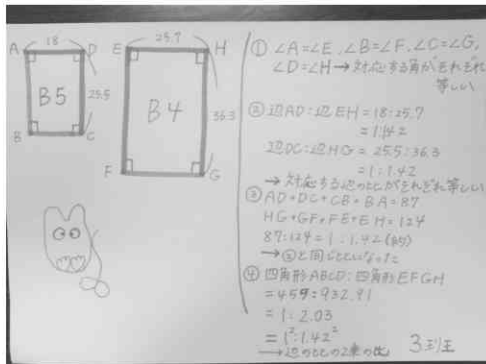 A 18 D
25.5
B5
B C
E 25.7 H
36.3
B4
F G
① ∠A=∠E, ∠B=∠F, ∠C=∠G,
∠D=∠H → 対応する角がそれぞれ
等しい
② 辺AD:辺EH = 18:25.7
= 1:1.42
辺DC:辺HG = 25.5:36.3
= 1:1.42
→ 対応する辺の比がそれぞれ等しい
③ AD+DC+CB+BA=87
HG+GF+FE+EH=124
87:124=1:1.42(約)
→②と同じ比になった
④ 四角形ABCD:四角形EFGH
=459:932.91
=1:2.03
=1²:1.42²
→辺の比の2乗の比